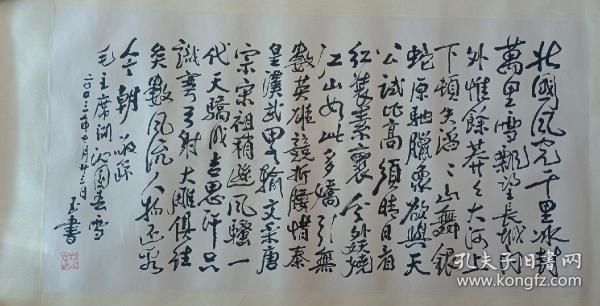 北國風光千里冰封
萬里雪飄望長城內
外惟餘莽々大河上
下頓失滔々山舞銀
蛇原馳臘象欲與天
公試比高須晴日看
紅裝素裹分外妖嬈
江山如此多嬌引無
數英雄競折腰惜秦
皇漢武略輸文采唐
宗宋祖稍遜風騷一
代天驕成吉思汗只
識彎弓射大雕俱往
矣數風流人物還看
今朝
毛主席詞沁園春雪
二〇〇三年十月廿三日
書
孔夫子旧书网